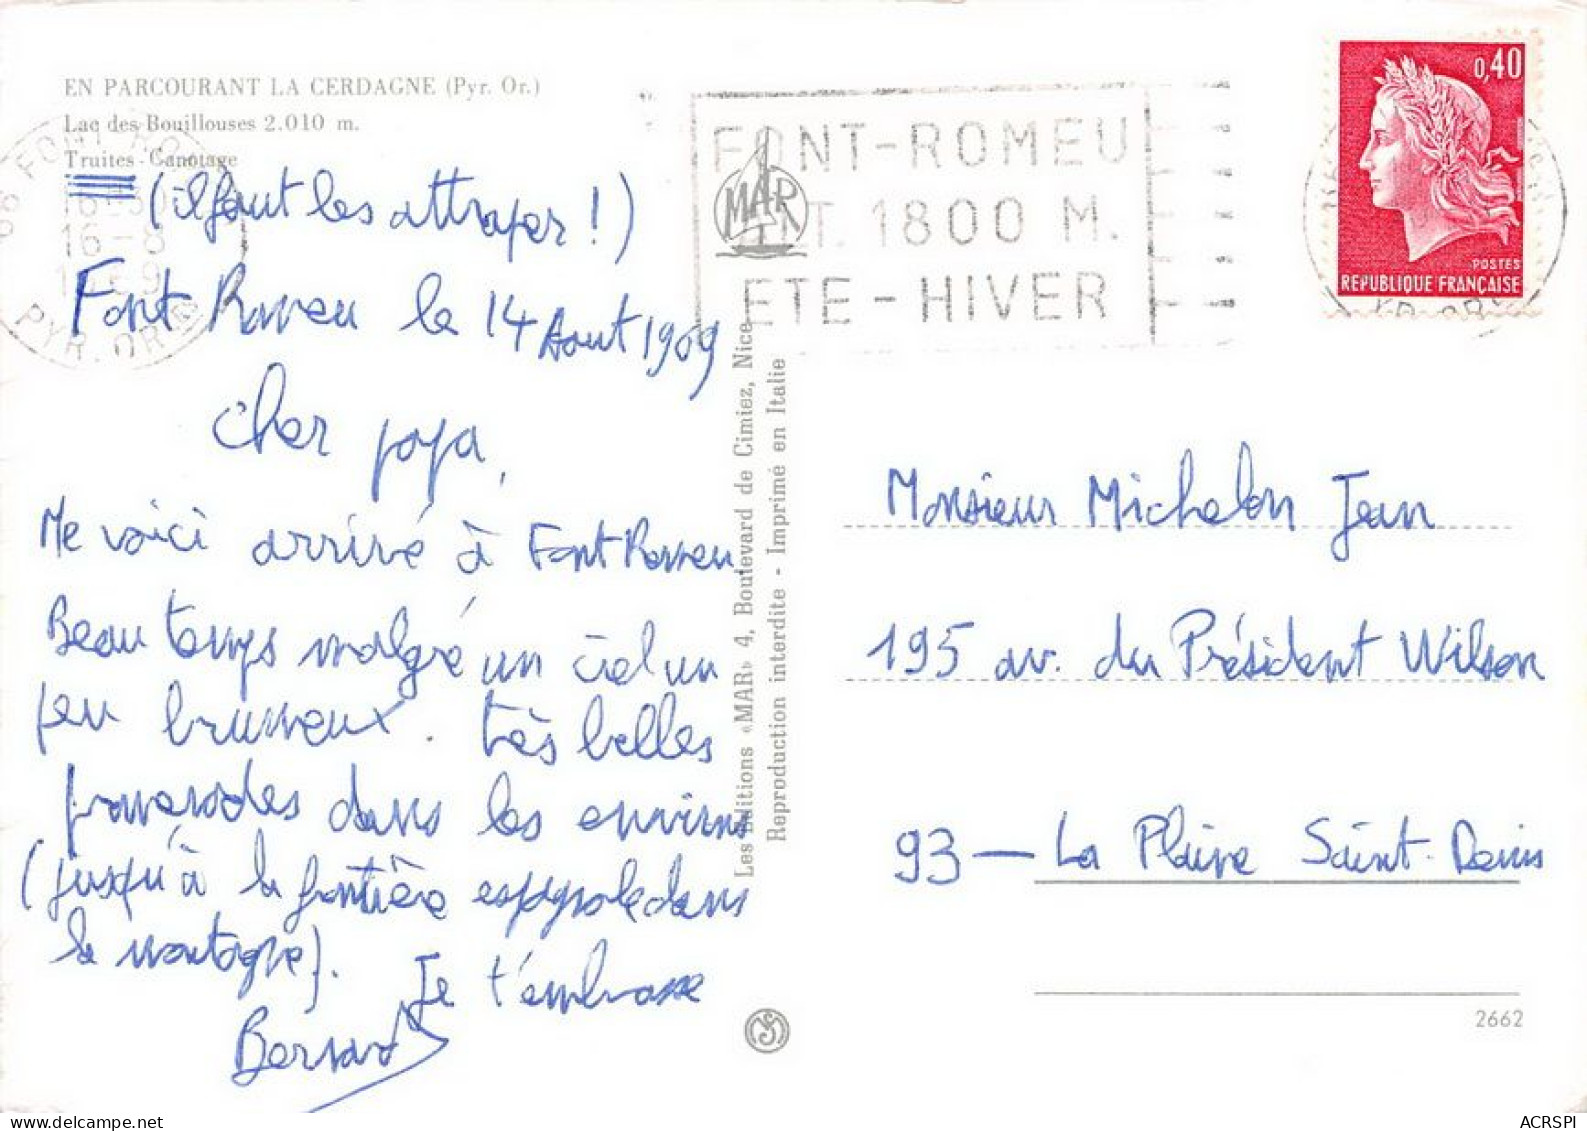 EN PARCOURANT LA CERDAGNE (Pyr. Or.)
Lac des Bouillouses 2.010 m.
Truites - Canotage
(il faut les attraper !)
Font Romeu le 14 Aout 1969
Cher papa,
Me voici arrivé à Font Romeu.
Beau temps malgré un ciel un
peu brumeux. très belles
promenades dans les environs
(jusqu'à la frontière espagnole dans
la montagne). Je t'embrasse
Bernard
66 FONT-ROMEU
16H30
16-8
1969
PYR. ORIE
FONT-ROMEU
ALT. 1800 M.
ETE - HIVER
MAR
Les Editions «MAR» 4, Boulevard de Cimiez, Nice
Reproduction interdite - Imprimé en Italie
0,40
POSTES
REPUBLIQUE FRANÇAISE
Monsieur Michelon Jean
195 av. du Président Wilson
93 - La Plaine Saint-Denis
2662
ACRSPI